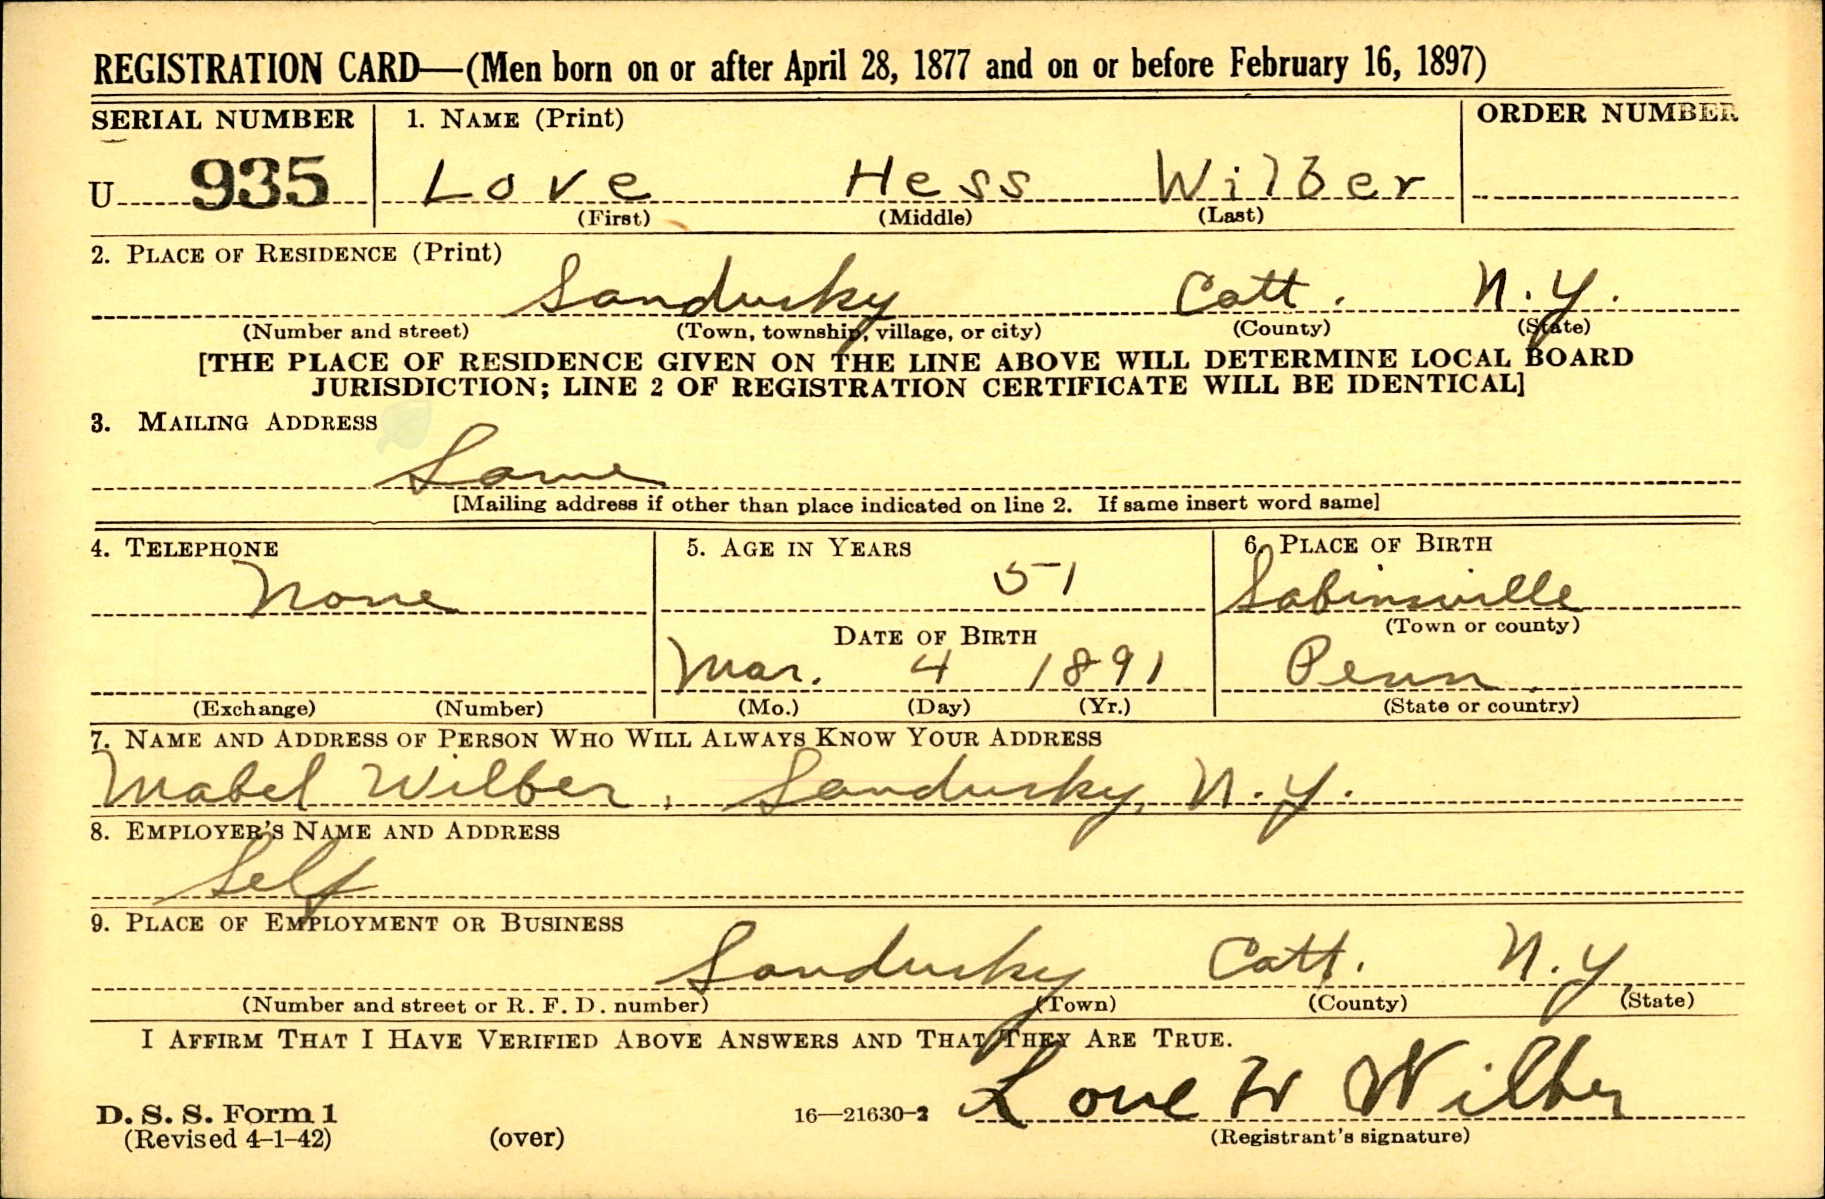 REGISTRATION CARD—(Men born on or after April 28, 1877 and on or before February 16, 1897)
SERIAL NUMBER 1. NAME (Print) ORDER NUMBER
U 935 Love Hess Wilber
(First) (Middle) (Last)
2. PLACE OF RESIDENCE (Print)
Sandusky Catt. N.Y.
(Number and street) (Town, township, village, or city) (County) (State)
[THE PLACE OF RESIDENCE GIVEN ON THE LINE ABOVE WILL DETERMINE LOCAL BOARD
JURISDICTION; LINE 2 OF REGISTRATION CERTIFICATE WILL BE IDENTICAL]
3. MAILING ADDRESS
Same
[Mailing address if other than place indicated on line 2. If same insert word same]
4. TELEPHONE 5. AGE IN YEARS 6. PLACE OF BIRTH
None 51 Sabinsville
(Town or county)
DATE OF BIRTH
Mar. 4 1891 Penn.
(Exchange) (Number) (Mo.) (Day) (Yr.) (State or country)
7. NAME AND ADDRESS OF PERSON WHO WILL ALWAYS KNOW YOUR ADDRESS
Mabel Wilber, Sandusky, N.Y.
8. EMPLOYER'S NAME AND ADDRESS
Self
9. PLACE OF EMPLOYMENT OR BUSINESS
Sandusky Catt. N.Y.
(Number and street or R. F. D. number) (Town) (County) (State)
I AFFIRM THAT I HAVE VERIFIED ABOVE ANSWERS AND THAT THEY ARE TRUE.
Love H Wilber
D. S. S. Form 1 16—21630-2
(Revised 4-1-42) (over) (Registrant's signature)